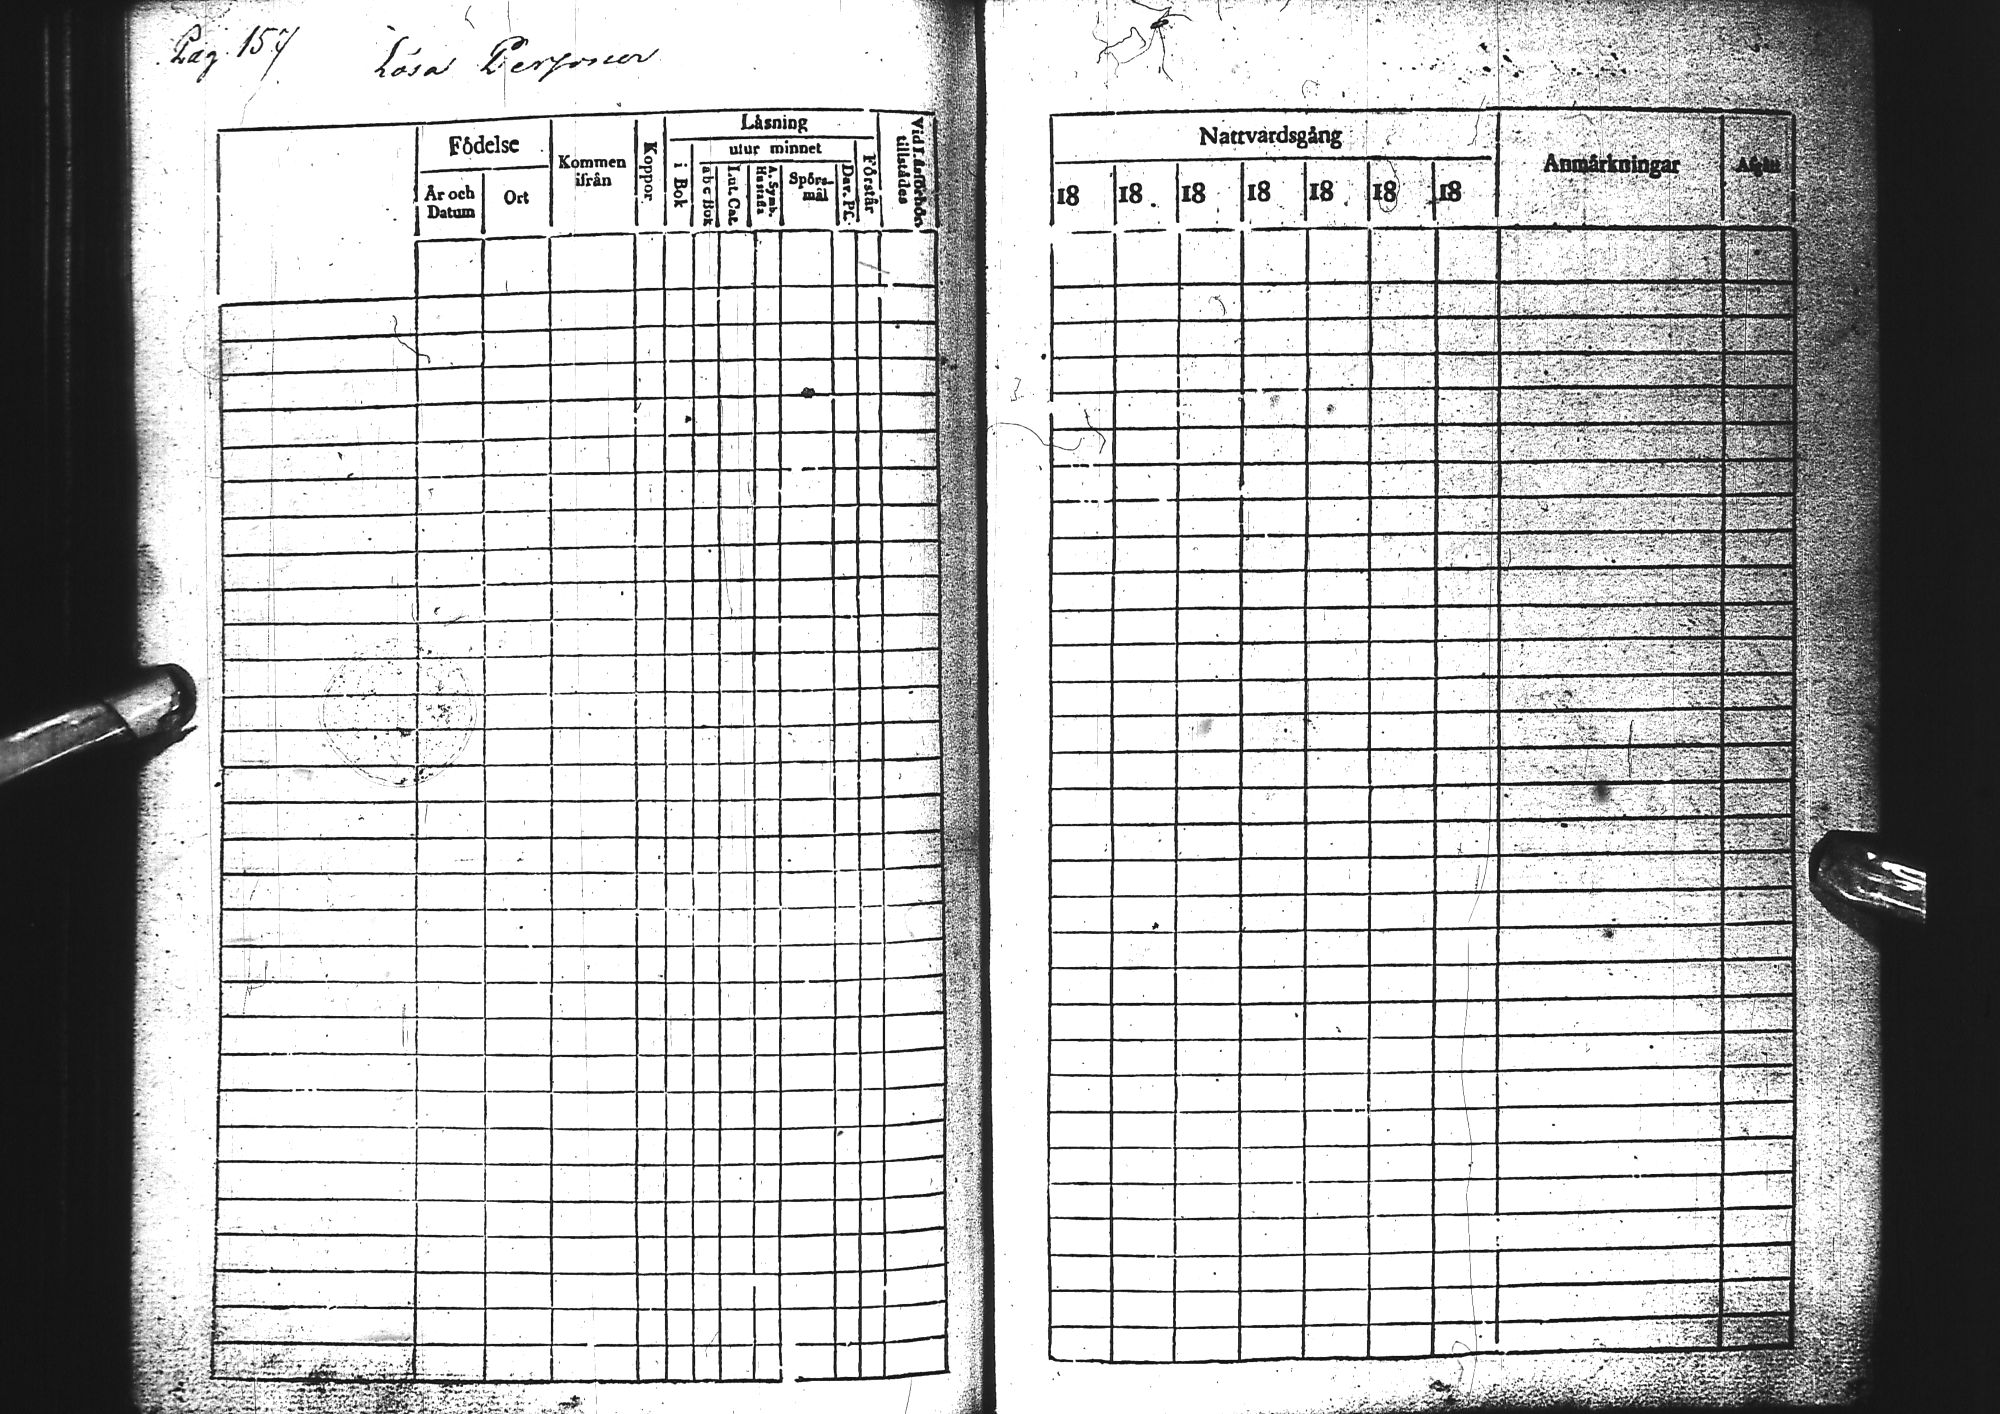 Pag. 157 Lösa Personer
Läsning
Födelse
utur minnet
Kommen
ifrån
Koppor
i Bok
a b c Bok
Lut. Cat.
A. Symb.
Hustafla
Spörs-
mål
Dav. Ps.
Förstår
Vid Läsförhör
tillstädes
År och
Datum
Ort
Nattvardsgång
Anmärkningar
18 18 18 18 18 18 18